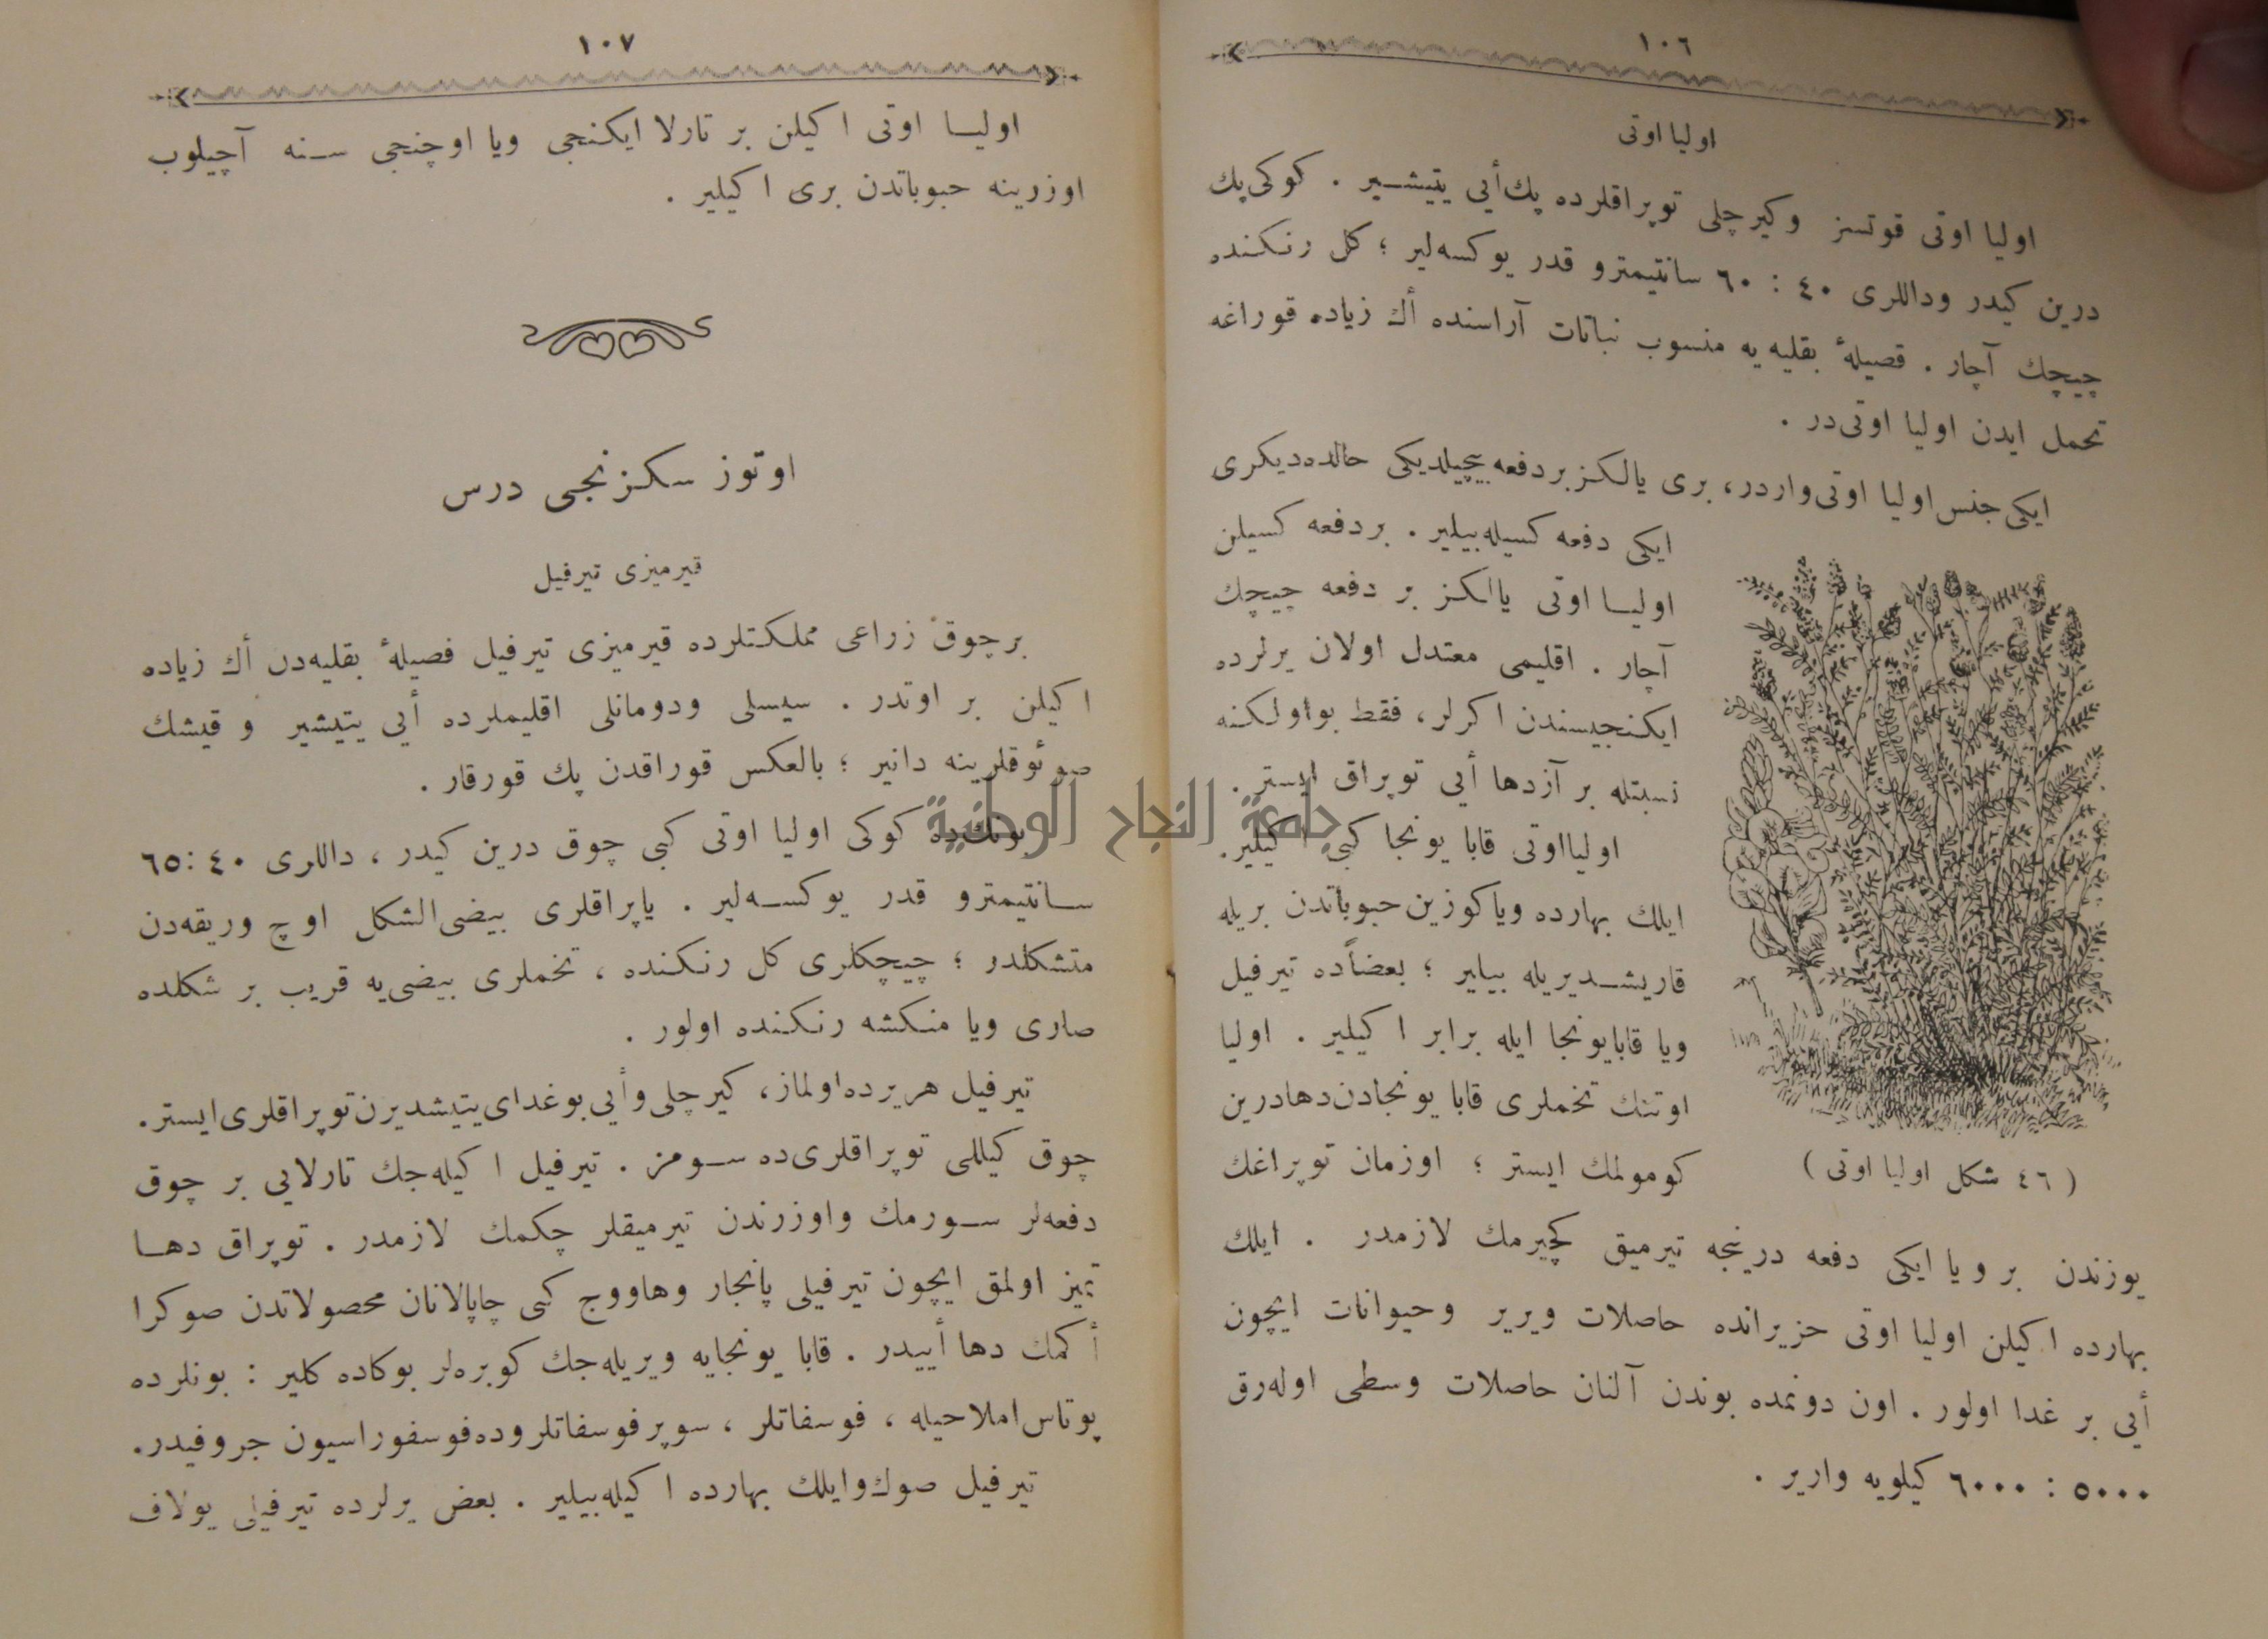 ١٠٦
اوليا اوتى
اوليا اوتى قوتسز وكيرچلى توپراقلرده پك أيى يتيشير . كوكى پك
درين كيدر وداللرى ٤٠ : ٦٠ سانتيمترو قدر يوكسه‌لير ؛ كل رنكنده
چيچك آچار . قصيلهٔ بقليه يه منسوب نباتات آراسنده أك زياده قوراغه
تحمل ايدن اوليا اوتى‌در .
ايكى جنس اوليا اوتى واردر، برى يالكز بردفعه بيچيلديكى حالده ديكرى
ايكى دفعه كسيله‌بيلير . بردفعه كسيلن
اوليا اوتى يالكز بر دفعه چيچك
آچار . اقليمى معتدل اولان يرلرده
ايكنجيسندن اكرلر، فقط بو اولكنه
نسبتله بر آزدها أيى توپراق ايستر .
اوليااوتى قابا يونجا كبى اكيلير.
ايلك بهارده وياكوزين حبوباتدن بريله
قاريشديريله بيلير ؛ بعضاًده تيرفيل
ويا قابايونجا ايله برابر اكيلير . اوليا
اوتنك تخملرى قابا يونجادن‌دهادرين
كومولمك ايستر ؛ اوزمان توپراغك
( ٤٦ شكل اوليا اوتى )
يوزندن بر ويا ايكى دفعه درينجه تيرميق كچيرمك لازمدر . ايلك
بهارده اكيلن اوليا اوتى حزيرانده حاصلات ويرير وحيوانات ايچون
أيى بر غدا اولور . اون دونمده بوندن آلنان حاصلات وسطى اوله‌رق
٥٠٠٠ : ٦٠٠٠ كيلويه وارير .
١٠٧
اوليا اوتى اكيلن بر تارلا ايكنجى ويا اوچنجى سنه آچيلوب
اوزرينه حبوباتدن برى اكيلير .
اوتوز سكزنجى درس
قيرميزى تيرفيل
برچوق زراعى مملكتلرده قيرميزى تيرفيل فصيلهٔ بقليه‌دن أك زياده
اكيلن بر اوتدر . سيسلى ودومانلى اقليملرده أيى يتيشير و قيشك
صوئوقلرينه دانير ؛ بالعكس قوراقدن پك قورقار .
بونك‌ده كوكى اوليا اوتى كبى چوق درين كيدر ، داللرى ٤٠ :٦٥
سانتيمترو قدر يوكسه‌لير . ياپراقلرى بيضى‌الشكل اوچ وريقه‌دن
متشكلدر ؛ چيچكلرى كل رنكنده ، تخملرى بيضى‌يه قريب بر شكلده
صارى ويا منكشه رنكنده اولور .
تيرفيل هريرده‌اولماز، كيرچلى وأيى بوغداى يتيشديرن توپراقلرى ايستر.
چوق كيللى توپراقلرى‌ده سومز . تيرفيل اكيله‌جك تارلايى بر چوق
دفعه‌لر سورمك واوزرندن تيرميقلر چكمك لازمدر . توپراق دها
تميز اولمق ايچون تيرفيلى پانجار وهاووج كبى چاپالانان محصولاتدن صوكرا
أكمك دها أييدر . قابا يونجايه ويريله‌جك كوبره‌لر بوكاده كلير : بونلرده
پوتاس‌املاحيله ، فوسفاتلر ، سوپرفوسفاتلروده فوسفوراسيون جروفيدر.
تيرفيل صوك وايلك بهارده اكيله‌بيلير . بعض يرلرده تيرفيلى يولاف
جامعة النجاح الوطنية